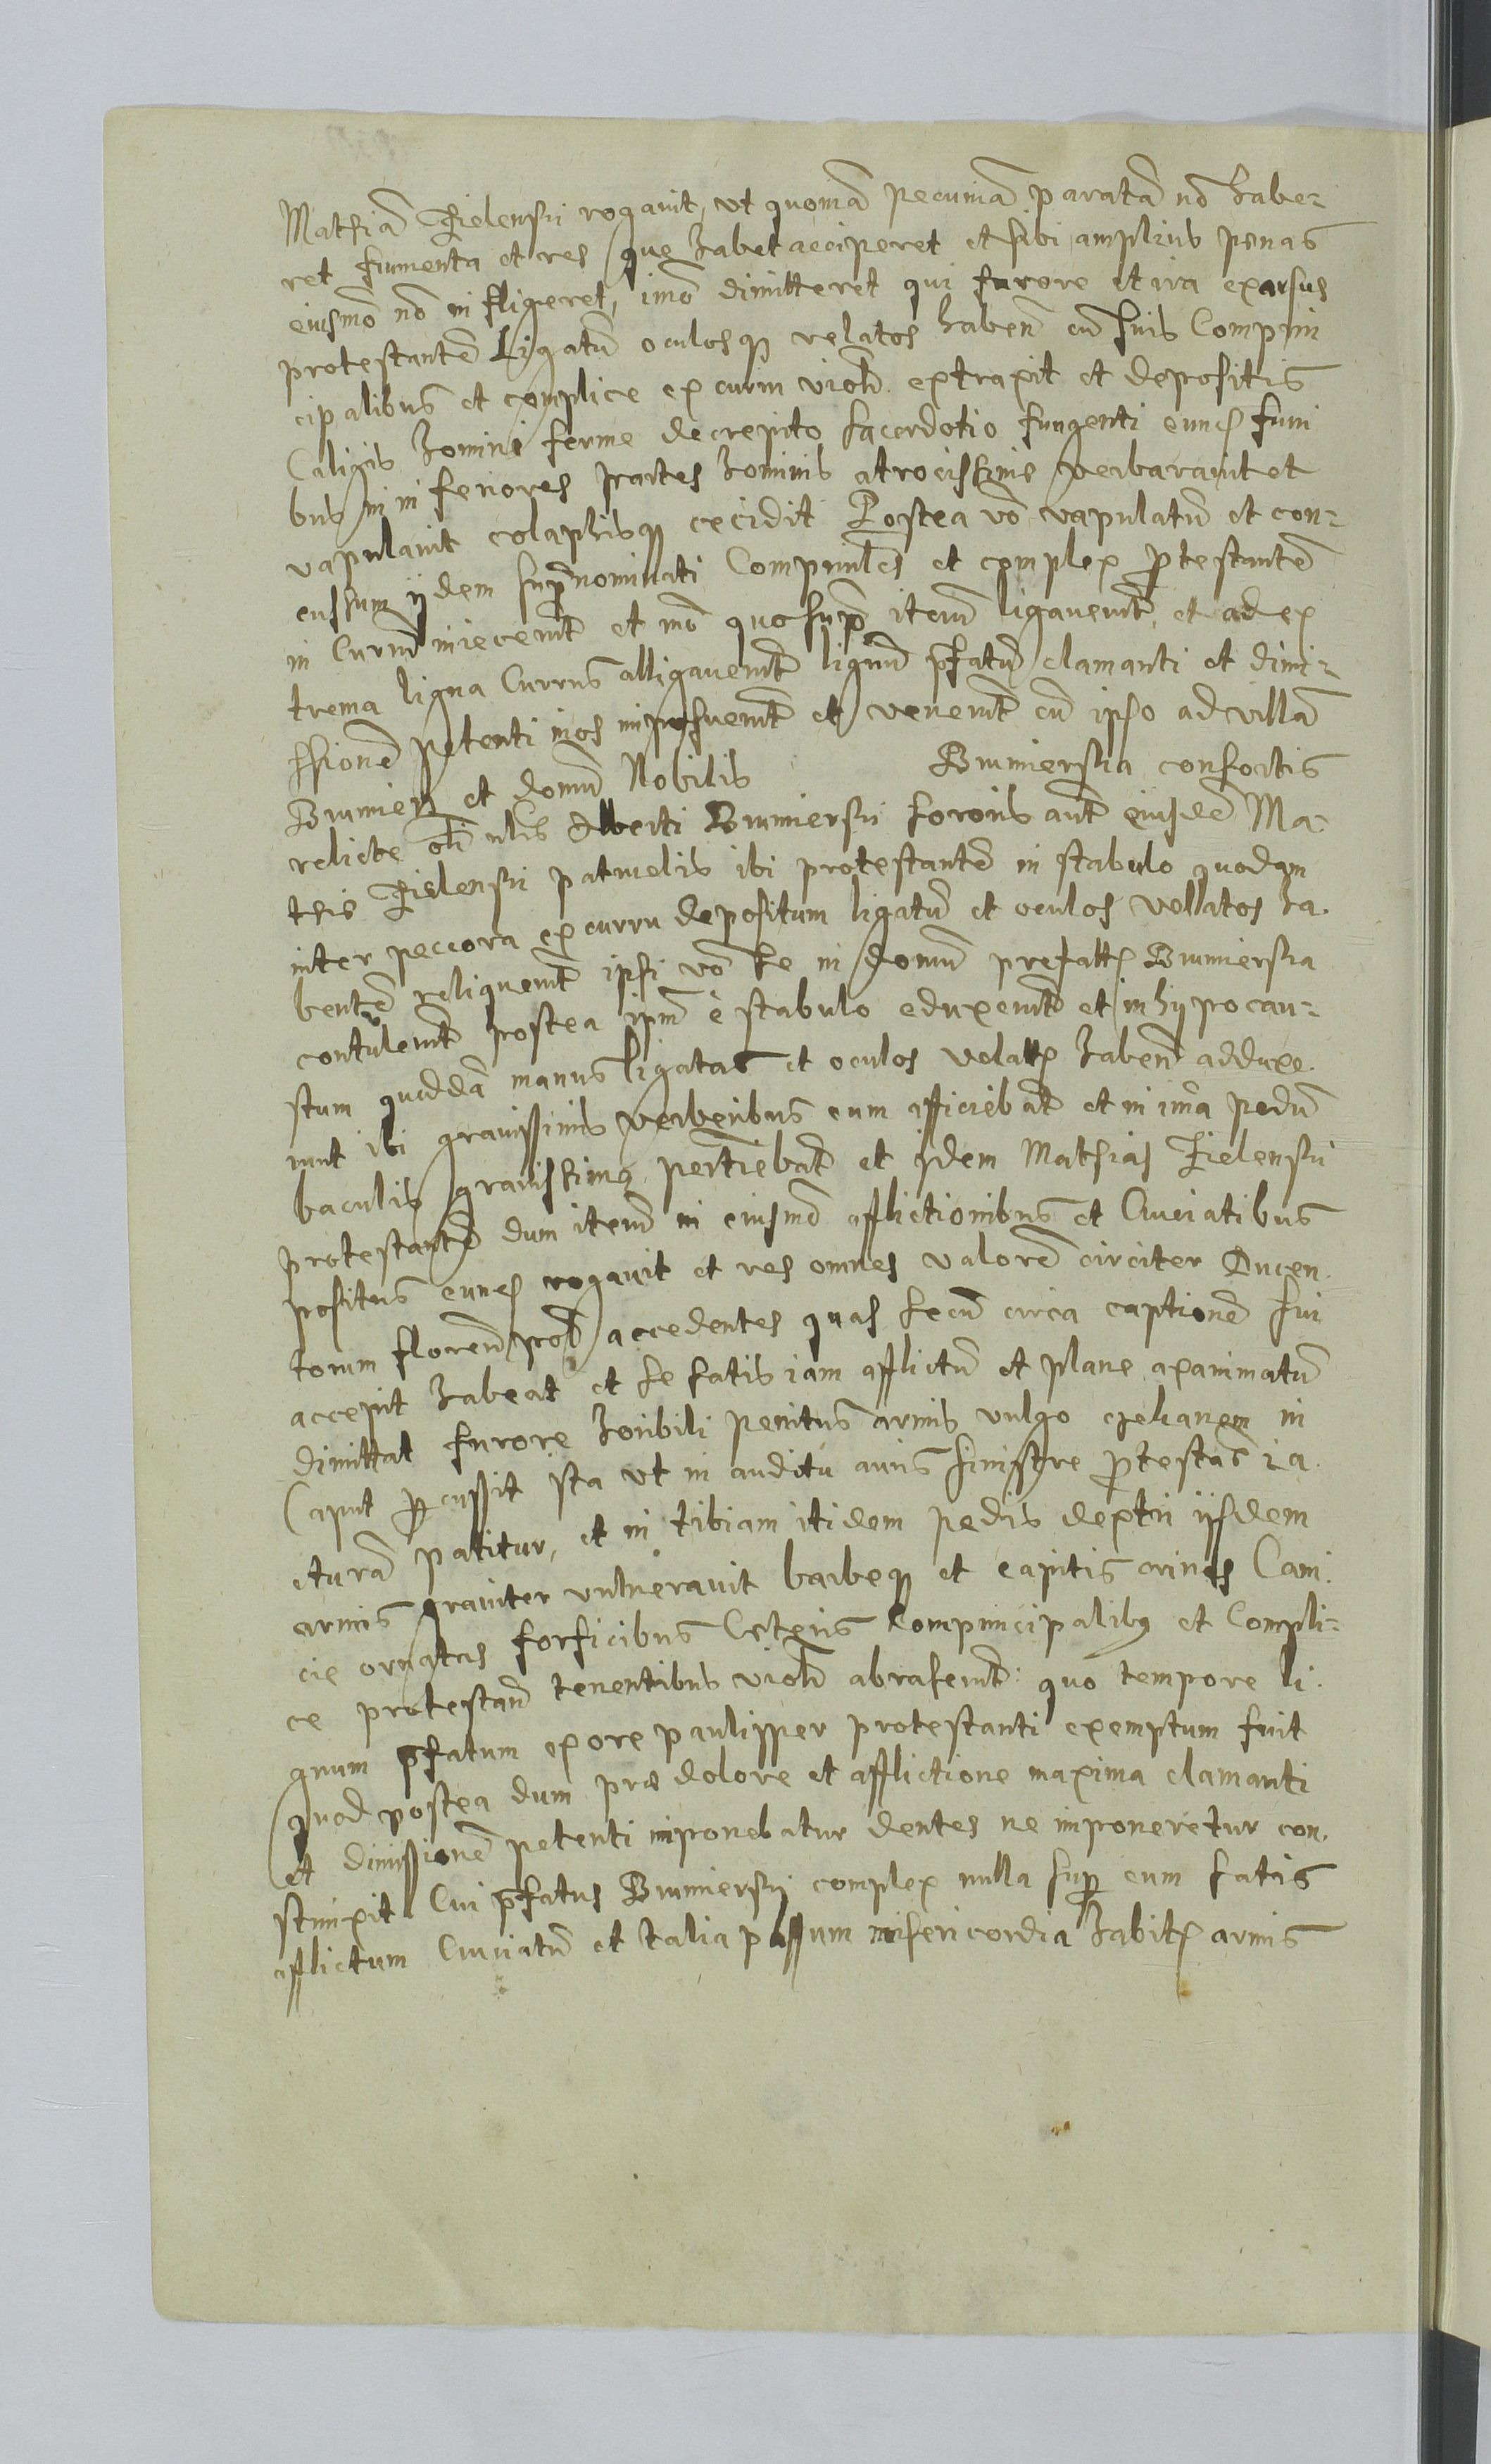 Mathiā Zielensķi rogavit, vt quoniā pecuniā paratā nō habe-
ret frumenta et res que habet acciperet et sibi amplius penas
eiusmō nō infligeret, imo dimitteret qui furore et ira exarsus
protestantē Ligatū oculosq velatos habeñ cū suis Comprin
cipalibus et complice ex curru violñ extraxit et depositis
Caligis homini ferme decrepito sacerdotio fungenti eunq funi
bus in inferiores partes hominis atrocissime verbaravit et
vapulavit colaphisq cecidit Postea vō vapulatū et con-
cussum ijdem supranominati Comprinles et complex ptestantē
in Currū iniecerūt et mō quo supra iterū ligaverūt, et ad ex
trema ligna Currus alligaverūt lignū pfatū clamanti et dimi-
ssionē petenti in os imposuerūt et venerūt cū ipso ad villā
Bromierz et domū Nobilis Bromierska consortis
relicte olī nlis Alberti Bromierski sororis aūt eiusdē Ma-
this Zielenski patruelis ibi protestantē in stabulo quodam
inter peccora ex curru depositum ligatū et oculos vellatos ha-
bentē reliquerūt ipsi vō se in domū prefatte Bromierska
contulerūt postea ipm̄ è stabulo eduxerūt et in hypocau-
stum quoddā manus ligatas et oculos velattos habeñ adduxe-
runt ibi gravissimis verberibus eum afficiebāt et in ima pedū
baculis gravissime, percutiebāt et isdem Mathias Zielensķi
protestantē dum iterū in eiusmō afflictionibus et Cruciatibus
positus eunq rogavit et res omnes valorē circiter Ducen-
torum floreñ prob accedentes quas secū circa captionē sui
accepit habeat et se satis iam afflictū et plane exanimatū
dimittat furore horibili penitus armis vulgo czekanem in
Caput percussit ita vt in auditu auris sinistre ptestās ia-
cturā patitur, et in tibiam itidem pedis dextri ijsdem
armis graviter vulneravit barbeq et capitis crines Cani-
cie ornatas forficibus Ceteris Comprincipalibus et Compli-
ce protestañ tenentibus violñ abraserūt: quo tempore li-
gnum pfatum ex ore paulisper protestanti exemptum fuit
Quod postea dum præ dolore et afflictione maxima clamanti
et dimissionē petenti imponebatur dentes ne imponeretur con-
strinxit Cui pfatus Bromierskj complex nulla super eum satis
afflictum Cruciatū et talia passum misericordia habita armis